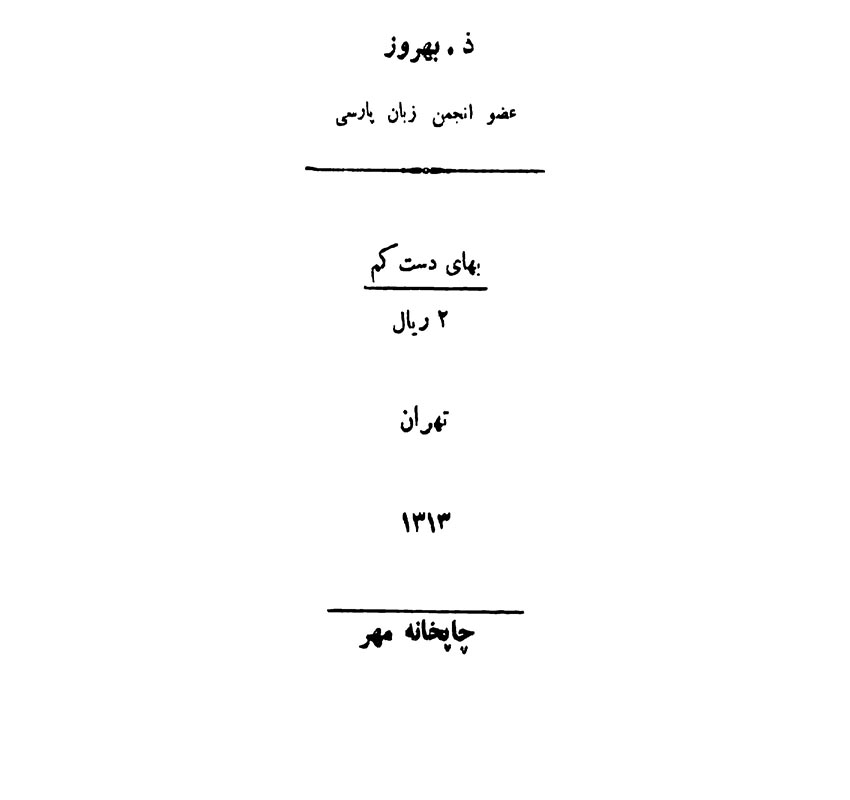 ذ . بهروز
عضو انجمن زبان پارسی
بهای دست کم
۲ ریال
تهران
۱۳۱۳
چاپخانه مهر